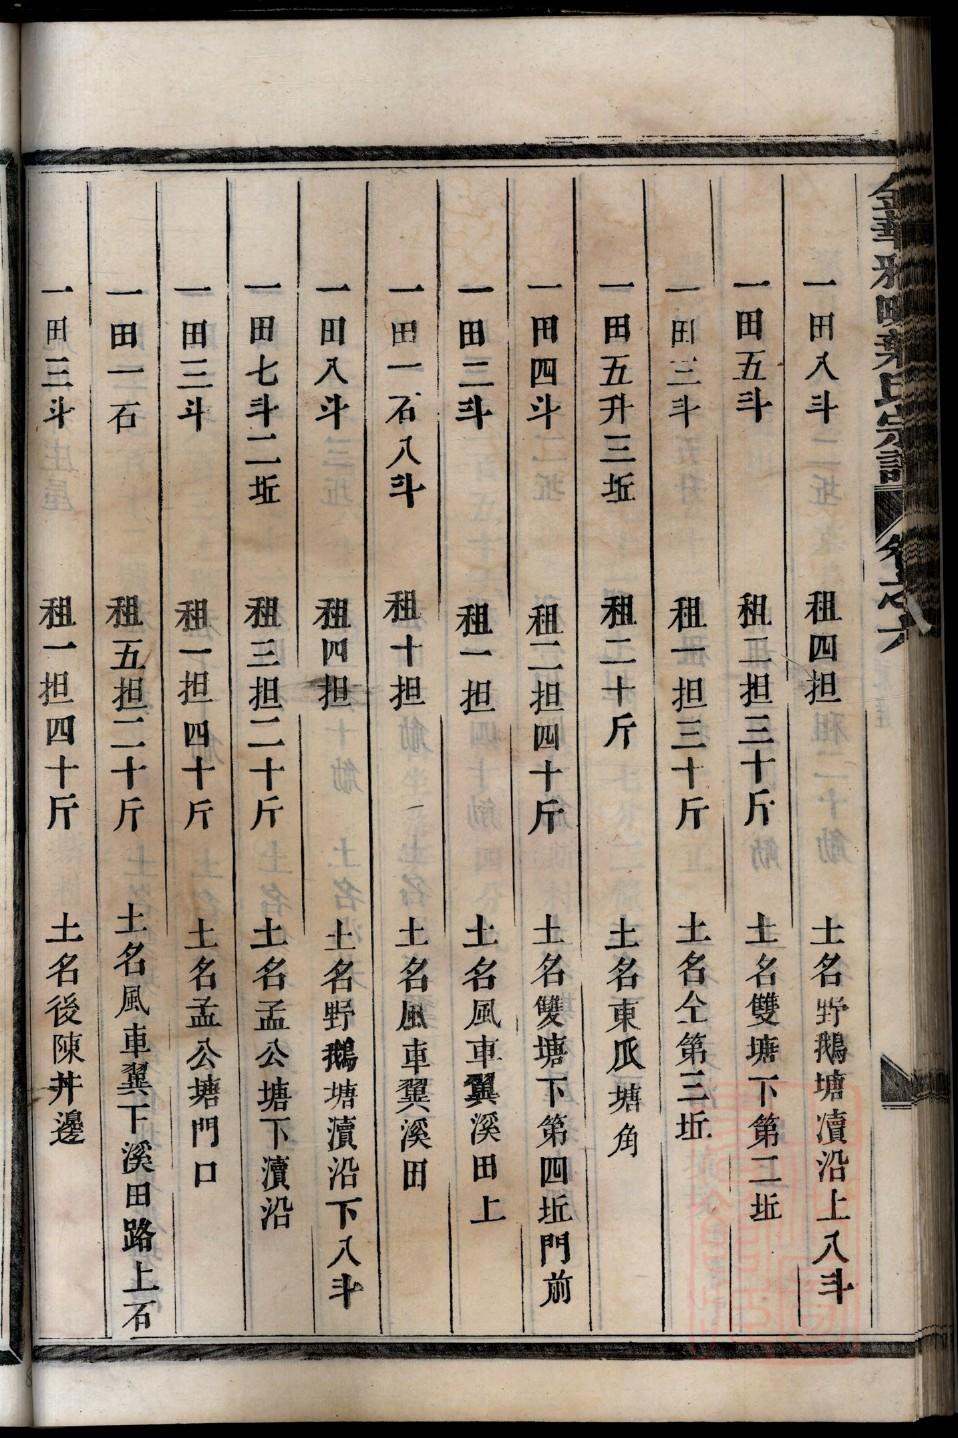 金華雅畈葉氏宗譜 卷之六
一田八斗 租四担 土名野鵝塘瀆沿上八斗
一田五斗 租二担三十斤 土名雙塘下第二坵
一田三斗 租一担三十斤 土名仝第三坵
一田五升三坵 租二十斤 土名東瓜塘角
一田四斗 租二担四十斤 土名雙塘下第四坵門前
一田二斗 租一担 土名風車翼溪田上
一田一石八斗 租十担 土名風車翼溪田
一田八斗 租四担 土名野鵝塘瀆沿下八斗
一田七斗二坵 租三担二十斤 土名孟公塘下瀆沿
一田三斗 租一担四十斤 土名孟公塘門口
一田一石 租五担二十斤 土名風車翼下溪田路上石
一田三斗 租一担四十斤 土名後陳井邊